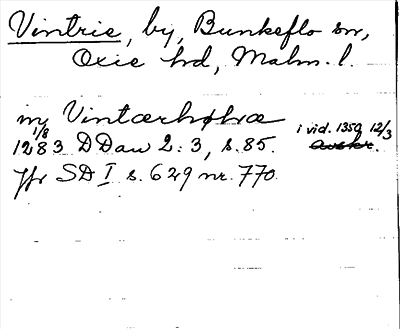 Vintrie, by, Bunkeflo sn,
Oxie hd, Malm. l.
in Vintærhøhræ
1283 1/8 DDan 2:3, s. 85. i vid. 1350 12/3
Jfr SD I s. 629 nr. 770.